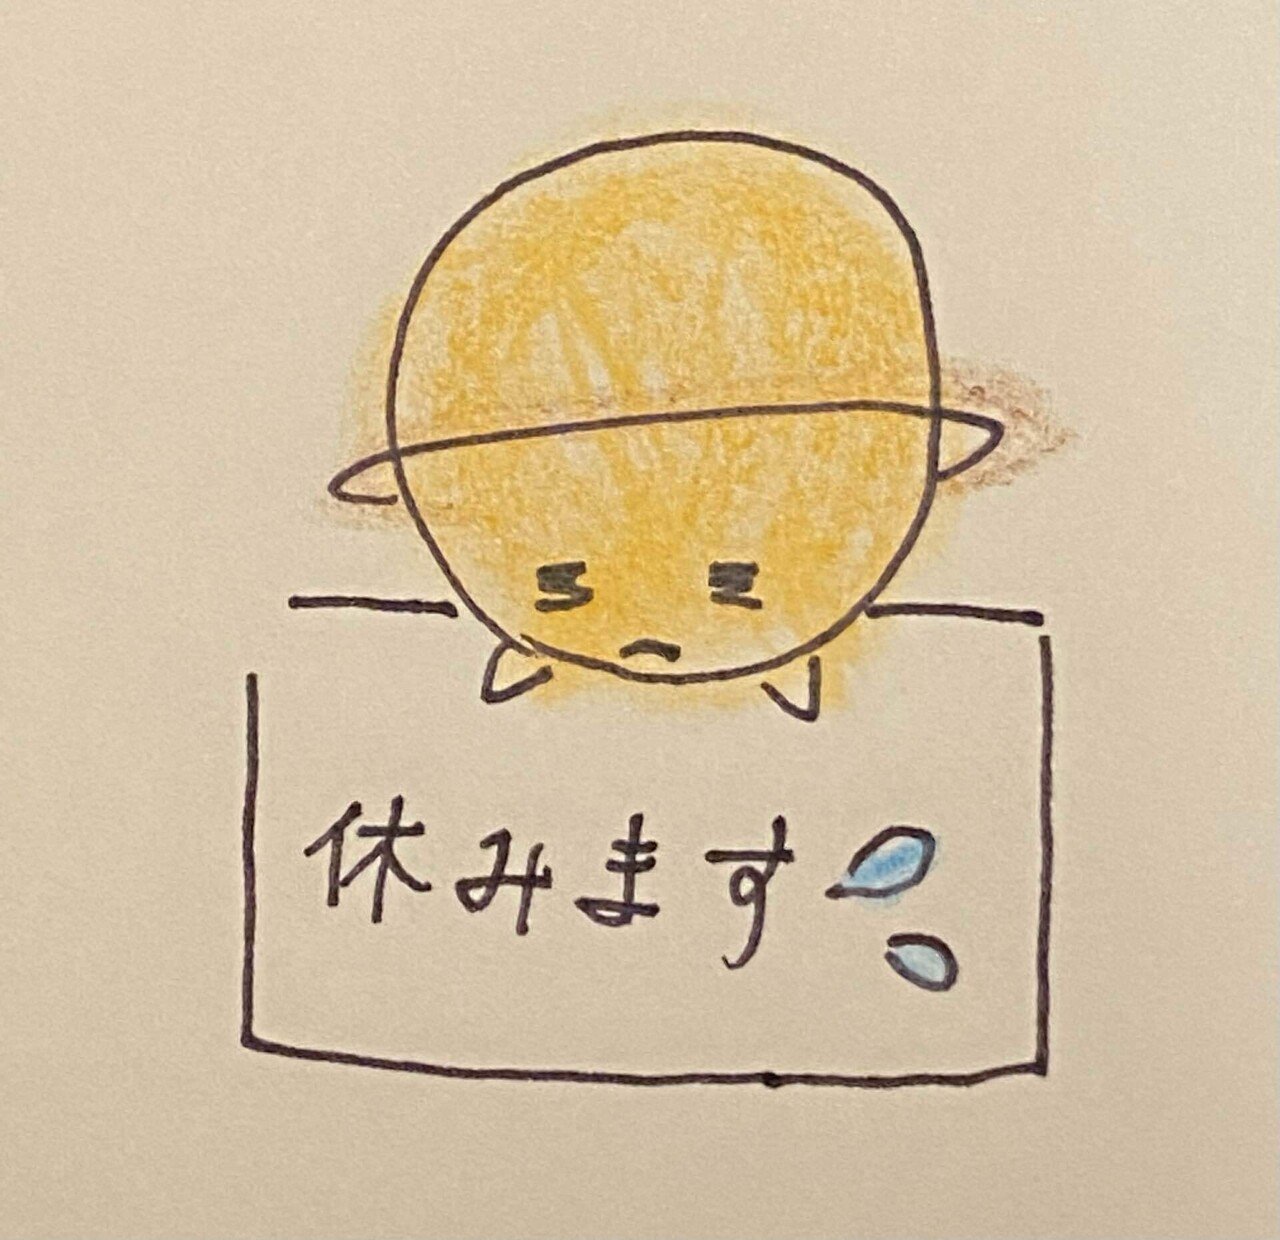 休みます